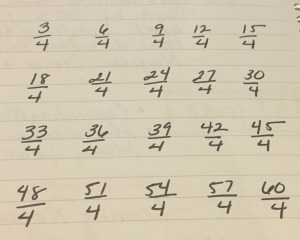 3/4 6/4 9/4 12/4 15/4
18/4 21/4 24/4 27/4 30/4
33/4 36/4 39/4 42/4 45/4
48/4 51/4 54/4 57/4 60/4